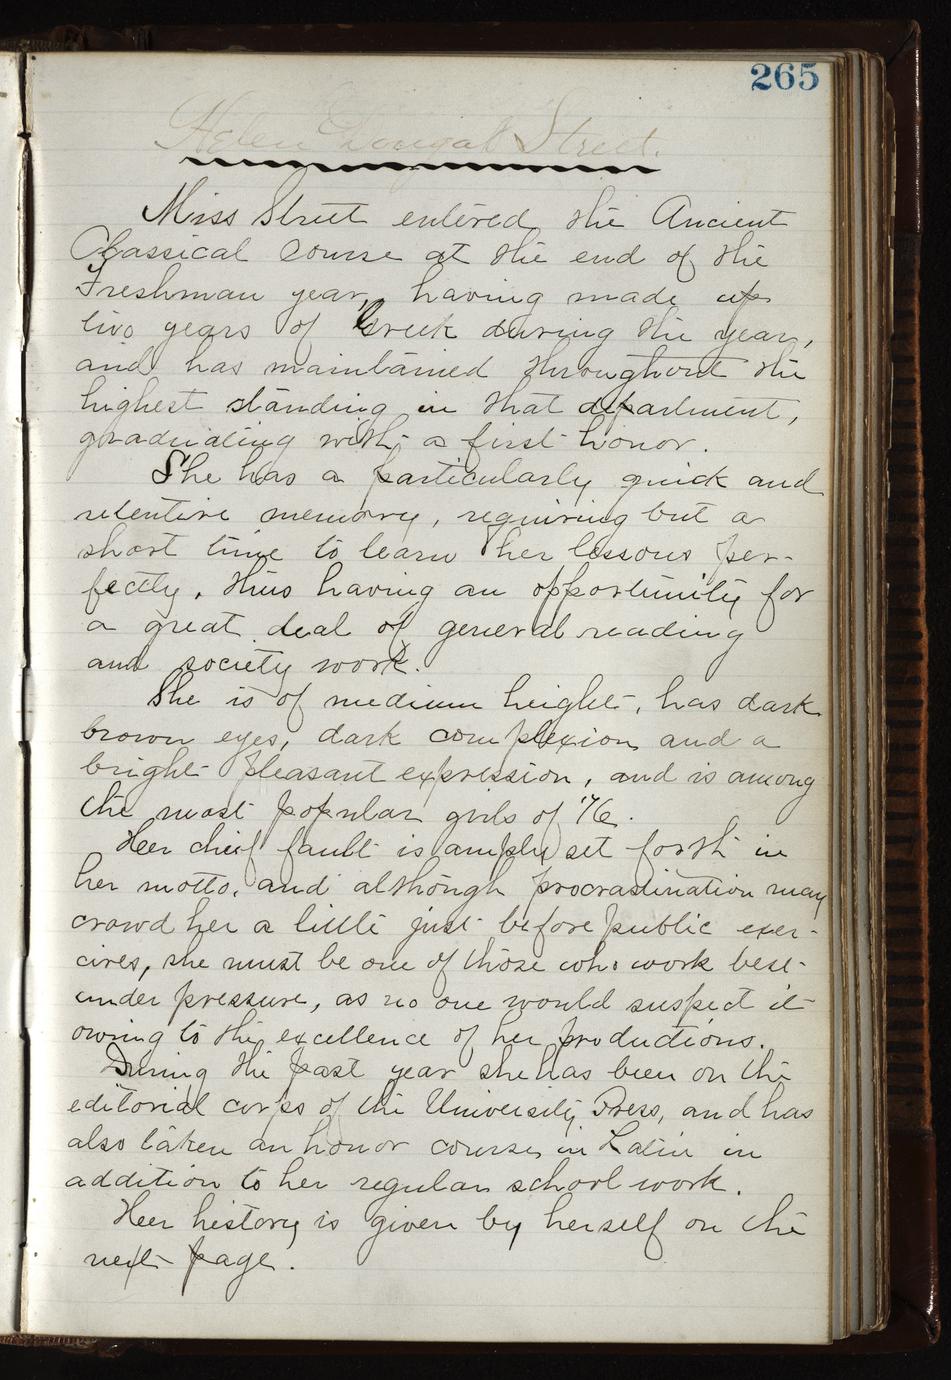 265
Helen Dougal Street.
Miss Street entered the Ancient
Classical course at the end of the
Freshman year, having made up
two years of Greek during the year,
and has maintained throughout the
highest standing in that department,
graduating with a first honor.
She has a particularly quick and
retentive memory, requiring but a
short time to learn her lessons per-
fectly, thus having an opportunity for
a great deal of general reading
and society work.
She is of medium height, has dark
brown eyes, dark complexion and a
bright pleasant expression, and is among
the most popular girls of '76.
Her chief fault is amply set forth in
her motto, and although procrastination may
crowd her a little just before public exer-
cises, she must be one of those who work best
under pressure, as no one would suspect it
owing to the excellence of her productions.
During the past year she has been on the
editorial corps of the University Press, and has
also taken an honor course in Latin in
addition to her regular school work.
Her history is given by herself on the
next page.